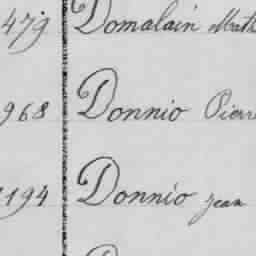 479 Domalain Math
968 Donnio Pierre
1194 Donnio Jean